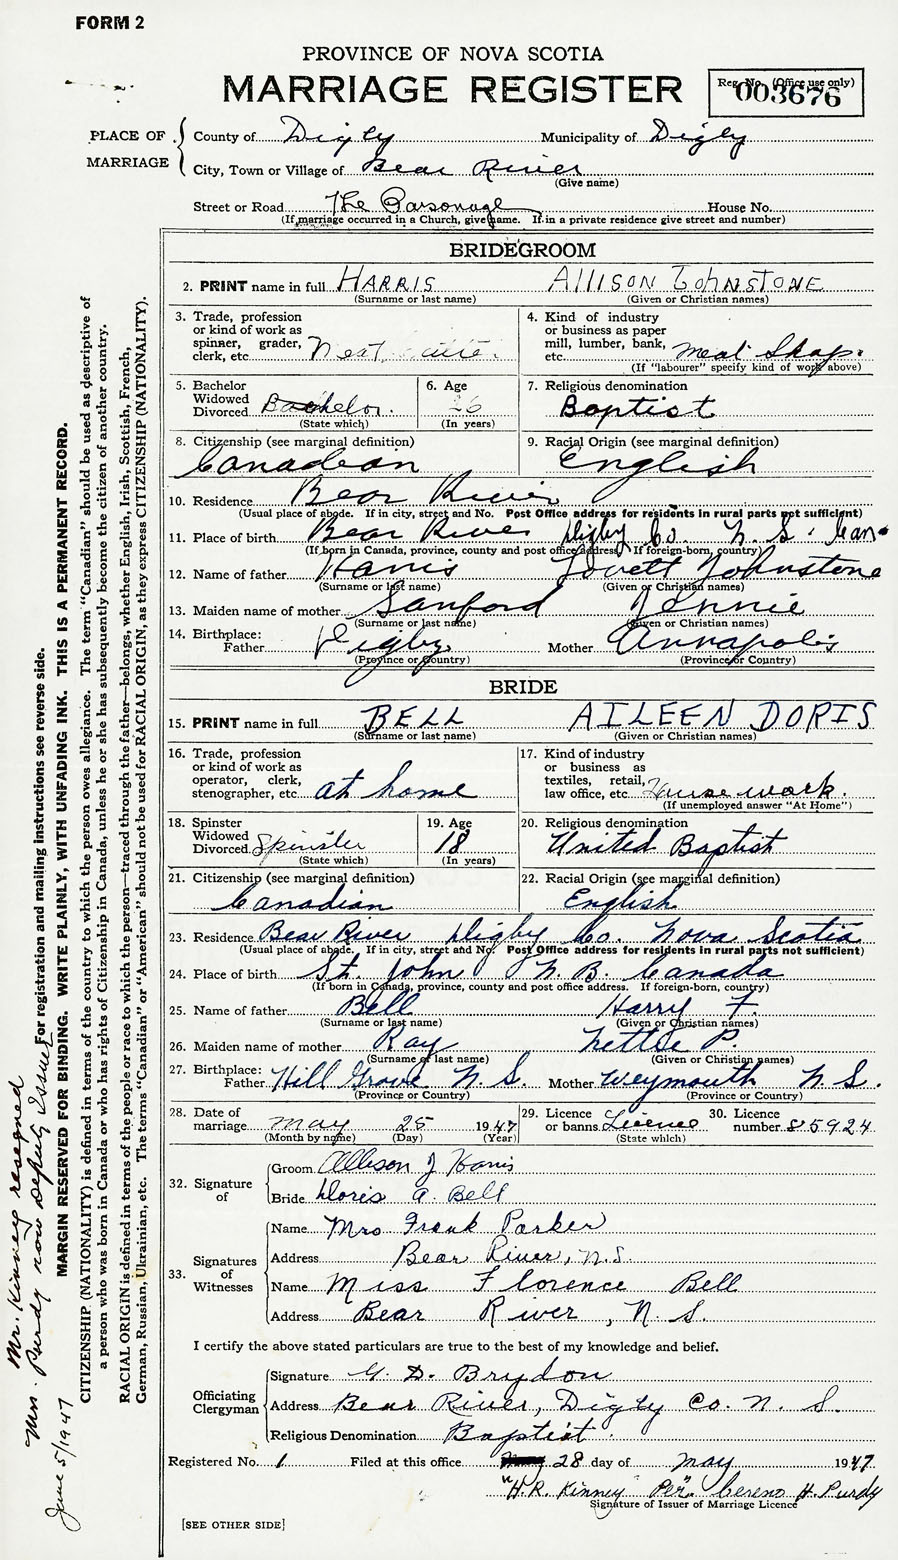 FORM 2
PROVINCE OF NOVA SCOTIA
MARRIAGE REGISTER
Reg. No. (Office use only)
003676
PLACE OF MARRIAGE
County of Digby Municipality of Digby
City, Town or Village of Bear River
(Give name)
Street or Road The Parsonage House No.
(If marriage occurred in a Church, give name. If in a private residence give street and number)
BRIDEGROOM
2. PRINT name in full HARRIS ALLISON JOHNSTONE
(Surname or last name) (Given or Christian names)
3. Trade, profession or kind of work as spinner, grader, clerk, etc.
4. Kind of industry or business as paper mill, lumber, bank, etc. Meat Shop.
(If "labourer" specify kind of work above)
5. Bachelor Widowed Divorced Bachelor.
(State which)
6. Age 26
(In years)
7. Religious denomination
Baptist
8. Citizenship (see marginal definition)
Canadian
9. Racial Origin (see marginal definition)
English
10. Residence Bear River
(Usual place of abode. If in city, street and No. Post Office address for residents in rural parts not sufficient)
11. Place of birth Bear River Digby Co. N. S. Can.
(If born in Canada, province, county and post office address. If foreign-born, country)
12. Name of father Harris Lovett Johnstone
(Surname or last name) (Given or Christian names)
13. Maiden name of mother Sanford Jennie
(Surname or last name) (Given or Christian names)
14. Birthplace:
Father Digby Mother Annapolis
(Province or Country) (Province or Country)
BRIDE
15. PRINT name in full BELL AILEEN DORIS
(Surname or last name) (Given or Christian names)
16. Trade, profession or kind of work as operator, clerk, stenographer, etc. at home
17. Kind of industry or business as textiles, retail, law office, etc. House work.
(If unemployed answer "At Home")
18. Spinster Widowed Divorced Spinster
(State which)
19. Age
18
(In years)
20. Religious denomination
United Baptist
21. Citizenship (see marginal definition)
Canadian
22. Racial Origin (see marginal definition)
English
23. Residence Bear River Digby Co. Nova Scotia
(Usual place of abode. If in city, street and No. Post Office address for residents in rural parts not sufficient)
24. Place of birth St. John N. B. Canada
(If born in Canada, province, county and post office address. If foreign-born, country)
25. Name of father Bell Harry F.
(Surname or last name) (Given or Christian names)
26. Maiden name of mother Ray Nettie P.
(Surname or last name) (Given or Christian names)
27. Birthplace:
Father Hill Grove N. S. Mother Weymouth N. S.
(Province or Country) (Province or Country)
28. Date of marriage May 25 1947
(Month by name) (Day) (Year)
29. Licence or banns Licence
(State which)
30. Licence number 85924
32. Signature of
Groom Allison J Harris
Bride Doris A. Bell
33. Signatures of Witnesses
Name Mrs Frank Parker
Address Bear River, N.S.
Name Miss Florence Bell
Address Bear River, N. S.
I certify the above stated particulars are true to the best of my knowledge and belief.
Officiating Clergyman
Signature G. D. Brydon
Address Bear River, Digby Co. N. S.
Religious Denomination Baptist.
Registered No. 1 Filed at this office 28 day of May 1947
"H.R. Kinney" Per" Cereno H. Purdy
Signature of Issuer of Marriage Licence
[SEE OTHER SIDE]
Mr. Kinney resigned
Mrs. Purdy now Deputy Issuer
June 5/1947
For registration and mailing instructions see reverse side.
MARGIN RESERVED FOR BINDING. WRITE PLAINLY, WITH UNFADING INK. THIS IS A PERMANENT RECORD.
CITIZENSHIP (NATIONALITY) is defined in terms of the country to which the person owes allegiance. The term "Canadian" should be used as descriptive of
a person who was born in Canada or who has rights of Citizenship in Canada, unless he or she has subsequently become the citizen of another country.
RACIAL ORIGIN is defined in terms of the people or race to which the person—traced through the father—belongs, whether English, Irish, Scottish, French,
German, Russian, Ukrainian, etc. The terms "Canadian" or "American" should not be used for RACIAL ORIGIN, as they express CITIZENSHIP (NATIONALITY).